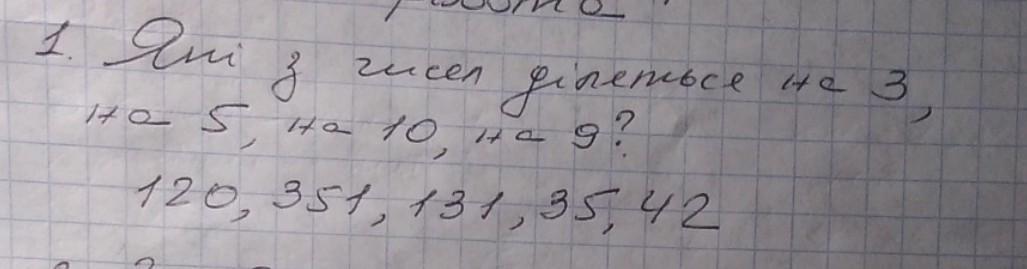 робота
1. Які з чисел ділеться на 3,
на 5, на 10, на 9?
120, 351, 131, 35, 42